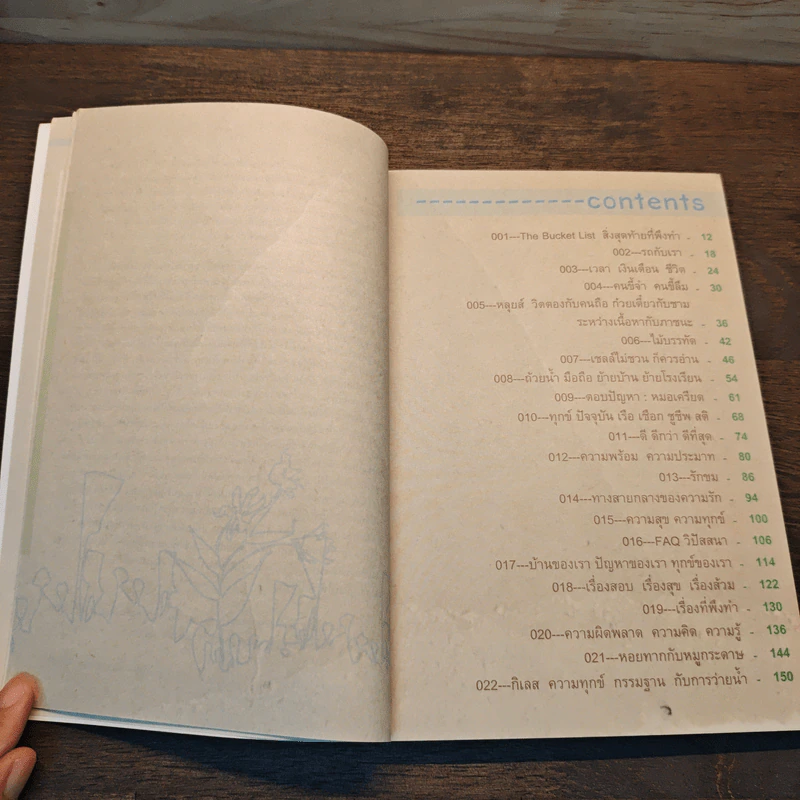 -------------contents
001---The Bucket List สิ่งสุดท้ายที่พึงทำ - 12
002---รถกับเรา - 18
003---เวลา เงินเดือน ชีวิต - 24
004---คนขี้จำ คนขี้ลืม - 30
005---หลุยส์ วิตตองกับคนถือ ก๋วยเตี๋ยวกับชาม
ระหว่างเนื้อหากับภาชนะ - 36
006---ไม้บรรทัด - 42
007---เซลล์ไม่ชวน ก็ควรอ่าน - 46
008---ถ้วยน้ำ มือถือ ย้ายบ้าน ย้ายโรงเรียน - 54
009---ตอบปัญหา : หมอเครียด - 61
010---ทุกข์ ปัจจุบัน เรือ เชือก ชูชีพ สติ - 68
011---ดี ดีกว่า ดีที่สุด - 74
012---ความพร้อม ความประมาท - 80
013---รักขม - 86
014---ทางสายกลางของความรัก - 94
015---ความสุข ความทุกข์ - 100
016---FAQ วิปัสสนา - 106
017---บ้านของเรา ปัญหาของเรา ทุกข์ของเรา - 114
018---เรื่องสอบ เรื่องสุข เรื่องส้วม - 122
019---เรื่องที่พึงทำ - 130
020---ความผิดพลาด ความคิด ความรู้ - 136
021---หอยทากกับหมูกระดาษ - 144
022---กิเลส ความทุกข์ กรรมฐาน กับการว่ายน้ำ - 150